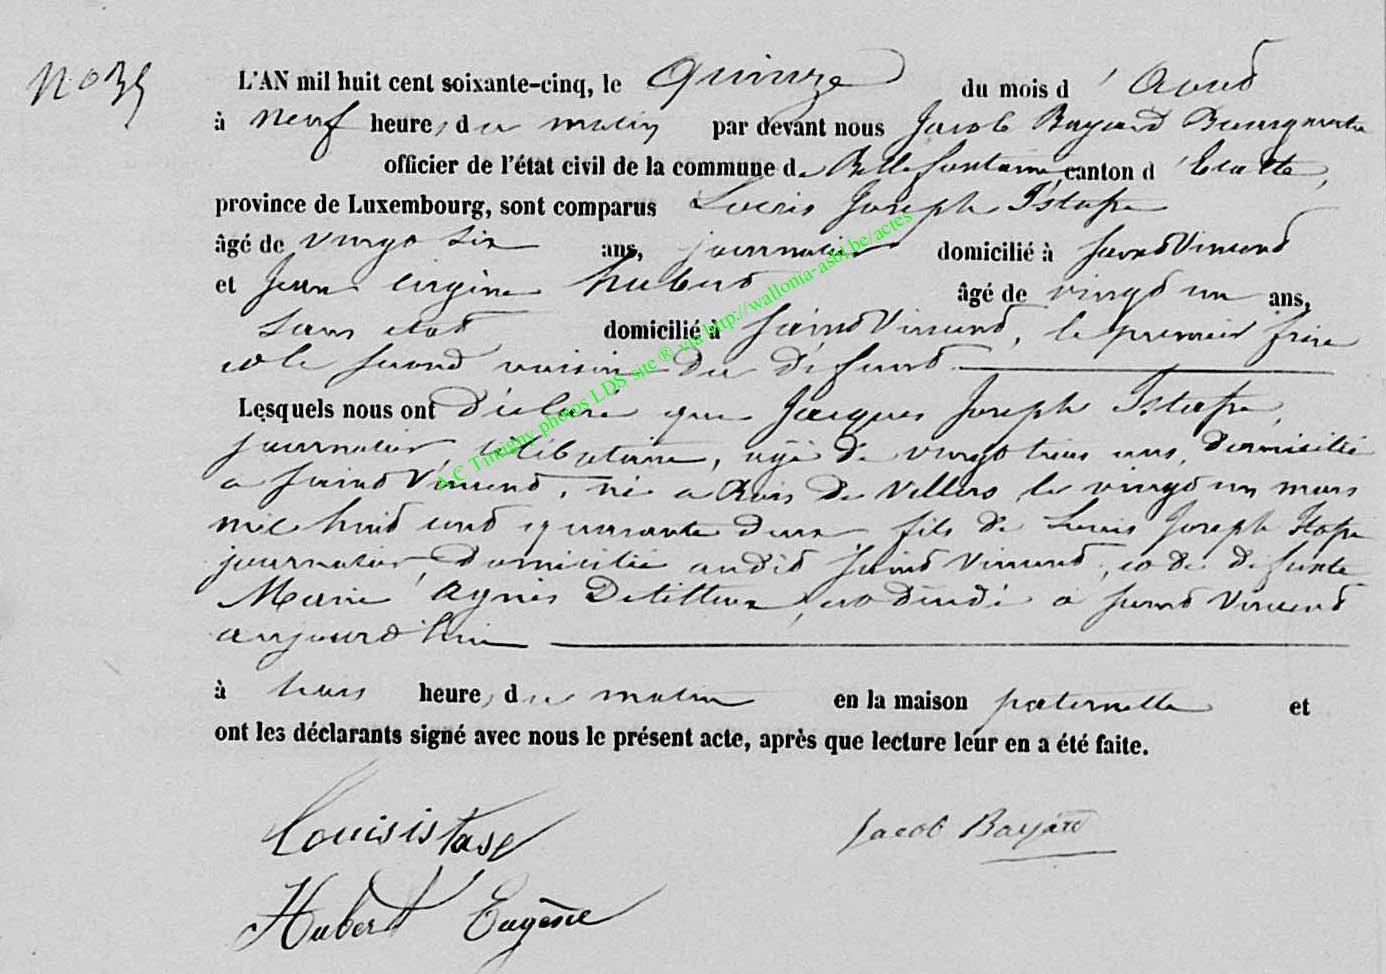 No 35
L'AN mil huit cent soixante-cinq, le Quinze du mois d'Aout
à neuf heures du matin par devant nous Jacob Bayard Bourgmestre
officier de l'état civil de la commune de Bellefontaine canton d'Etalle,
province de Luxembourg, sont comparus Louis Joseph Istasse
âgé de vingt six ans, journalier domicilié à Saint Vincent
et Jean Eugène Hubert âgé de vingt un ans,
sans état domicilié à Saint Vincent, le premier frère
et le second voisin du défunt
Lesquels nous ont déclaré que Jacques Joseph Istasse,
journalier, célibataire, agé de vingt trois ans, domicilié
a Saint Vincent, né a de Villers le vingt un mars
mil huit cent quarante deux, fils de Louis Joseph Istasse
journalier, domicilié audit Saint Vincent, et de défunte
Marie Agnès est décédé a Saint Vincent
aujourd'hui
à trois heures du matin en la maison paternelle et
ont les déclarants signé avec nous le présent acte, après que lecture leur en a été faite.
Louis istase
Jacob Bayard
Hubert Eugène
A.C Tintigny photos LDS site ® via http://wallonia-asbl.be/actes